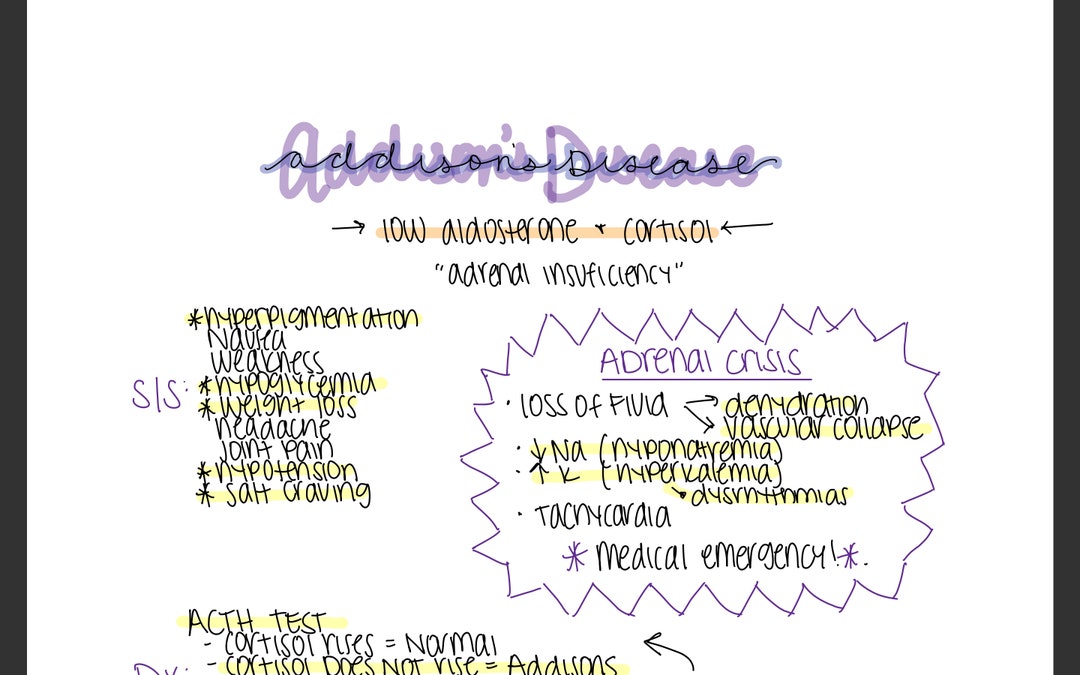 Addison's Disease
→ low aldosterone + cortisol ←
"adrenal insuficiency"
S/S:
*hyperpigmentation
Nausea
Weakness
*hypoglycemia
*weight loss
headache
Joint pain
*hypotension
* salt craving
ADrenal crisis
· loss of Fluid → dehydration
→ vascular collapse
· ↓ Na (hyponatremia)
· ↑ K (hyperkalemia)
→ dysrhythmias
· Tachycardia
* medical emergency! *.
ACTH TEST
- cortisol rises = Normal
Dx:
- cortisol Does Not rise = Addisons